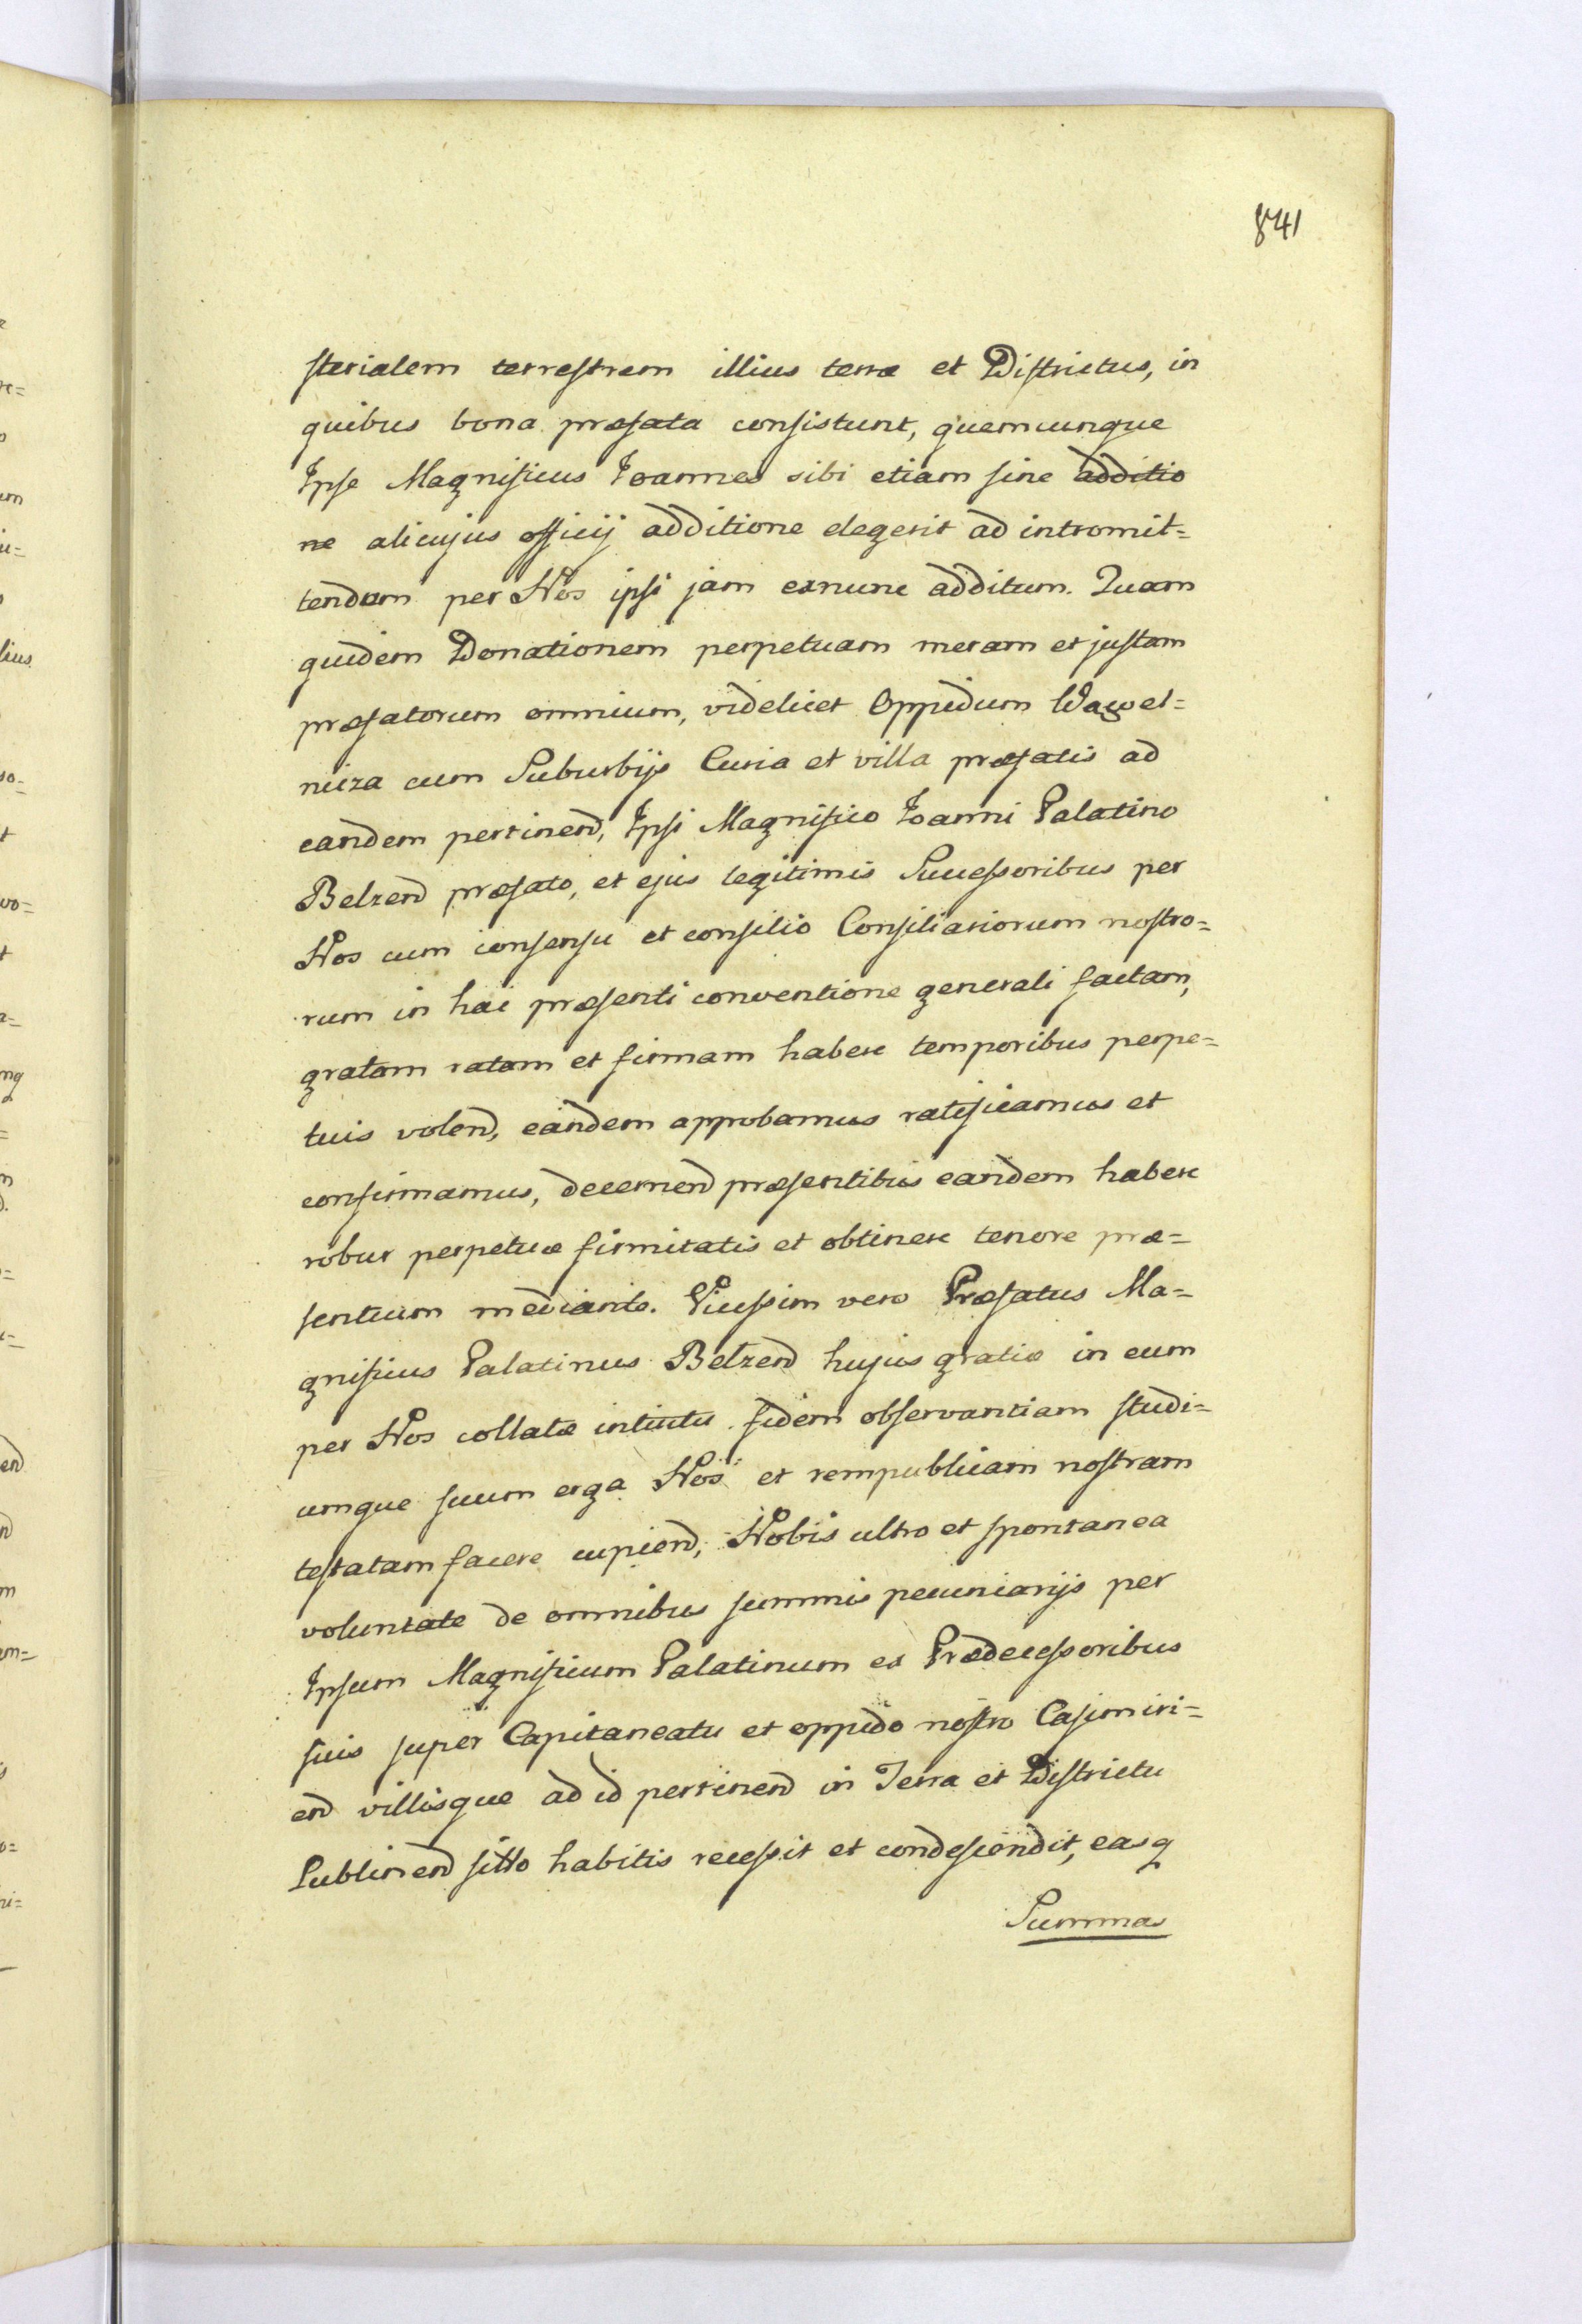 841
sterialem terrestrem illius terræ et Districtus, in
quibus bona præfata consistunt, quemcunque
Ipse Magnificus Joannes sibi etiam sine additio
ne alicujus officij additione elegerit ad intromit=
tendum per Nos ipsi jam exnunc additum. Quam
quidem Donationem perpetuam meram et justam
præfatorum omnium, videlicet Oppidum Wawel=
nicza cum Suburbijs Curia et villa præfatis ad
eandem pertinend, Ipsi Magnifico Joanni Palatino
Belzend præfato, et ejus legitimis Successoribus per
Nos cum consensu et consilio Consiliariorum nostro=
rum in hac præsenti conventione generali factam,
gratam ratam et firmam habere temporibus perpe=
tuis volend, eandem approbamus ratificamus et
confirmamus, decernend præsentibus eandem habere
robur perpetuæ firmitatis et obtinere tenore præ=
sentium mediante. Vicissim vero Præfatus Ma=
gnificus Palatinus Belzend hujus gratiæ in eum
per Nos collatæ intuitu fidem observantiam studi=
umque suum erga Nos et rempublicam nostram
testatam facere cupiend, Nobis ultro et spontanea
voluntate de omnibus summis pecuniarijs per
Ipsum Magnificum Palatinum ex Prædecessoribus
suis super Capitaneatu et oppido nostro Casimiri=
end villisque ad id pertinend in Terra et Districtu
Lublinend sitto habitis recessit et condescendit, easq
Summas